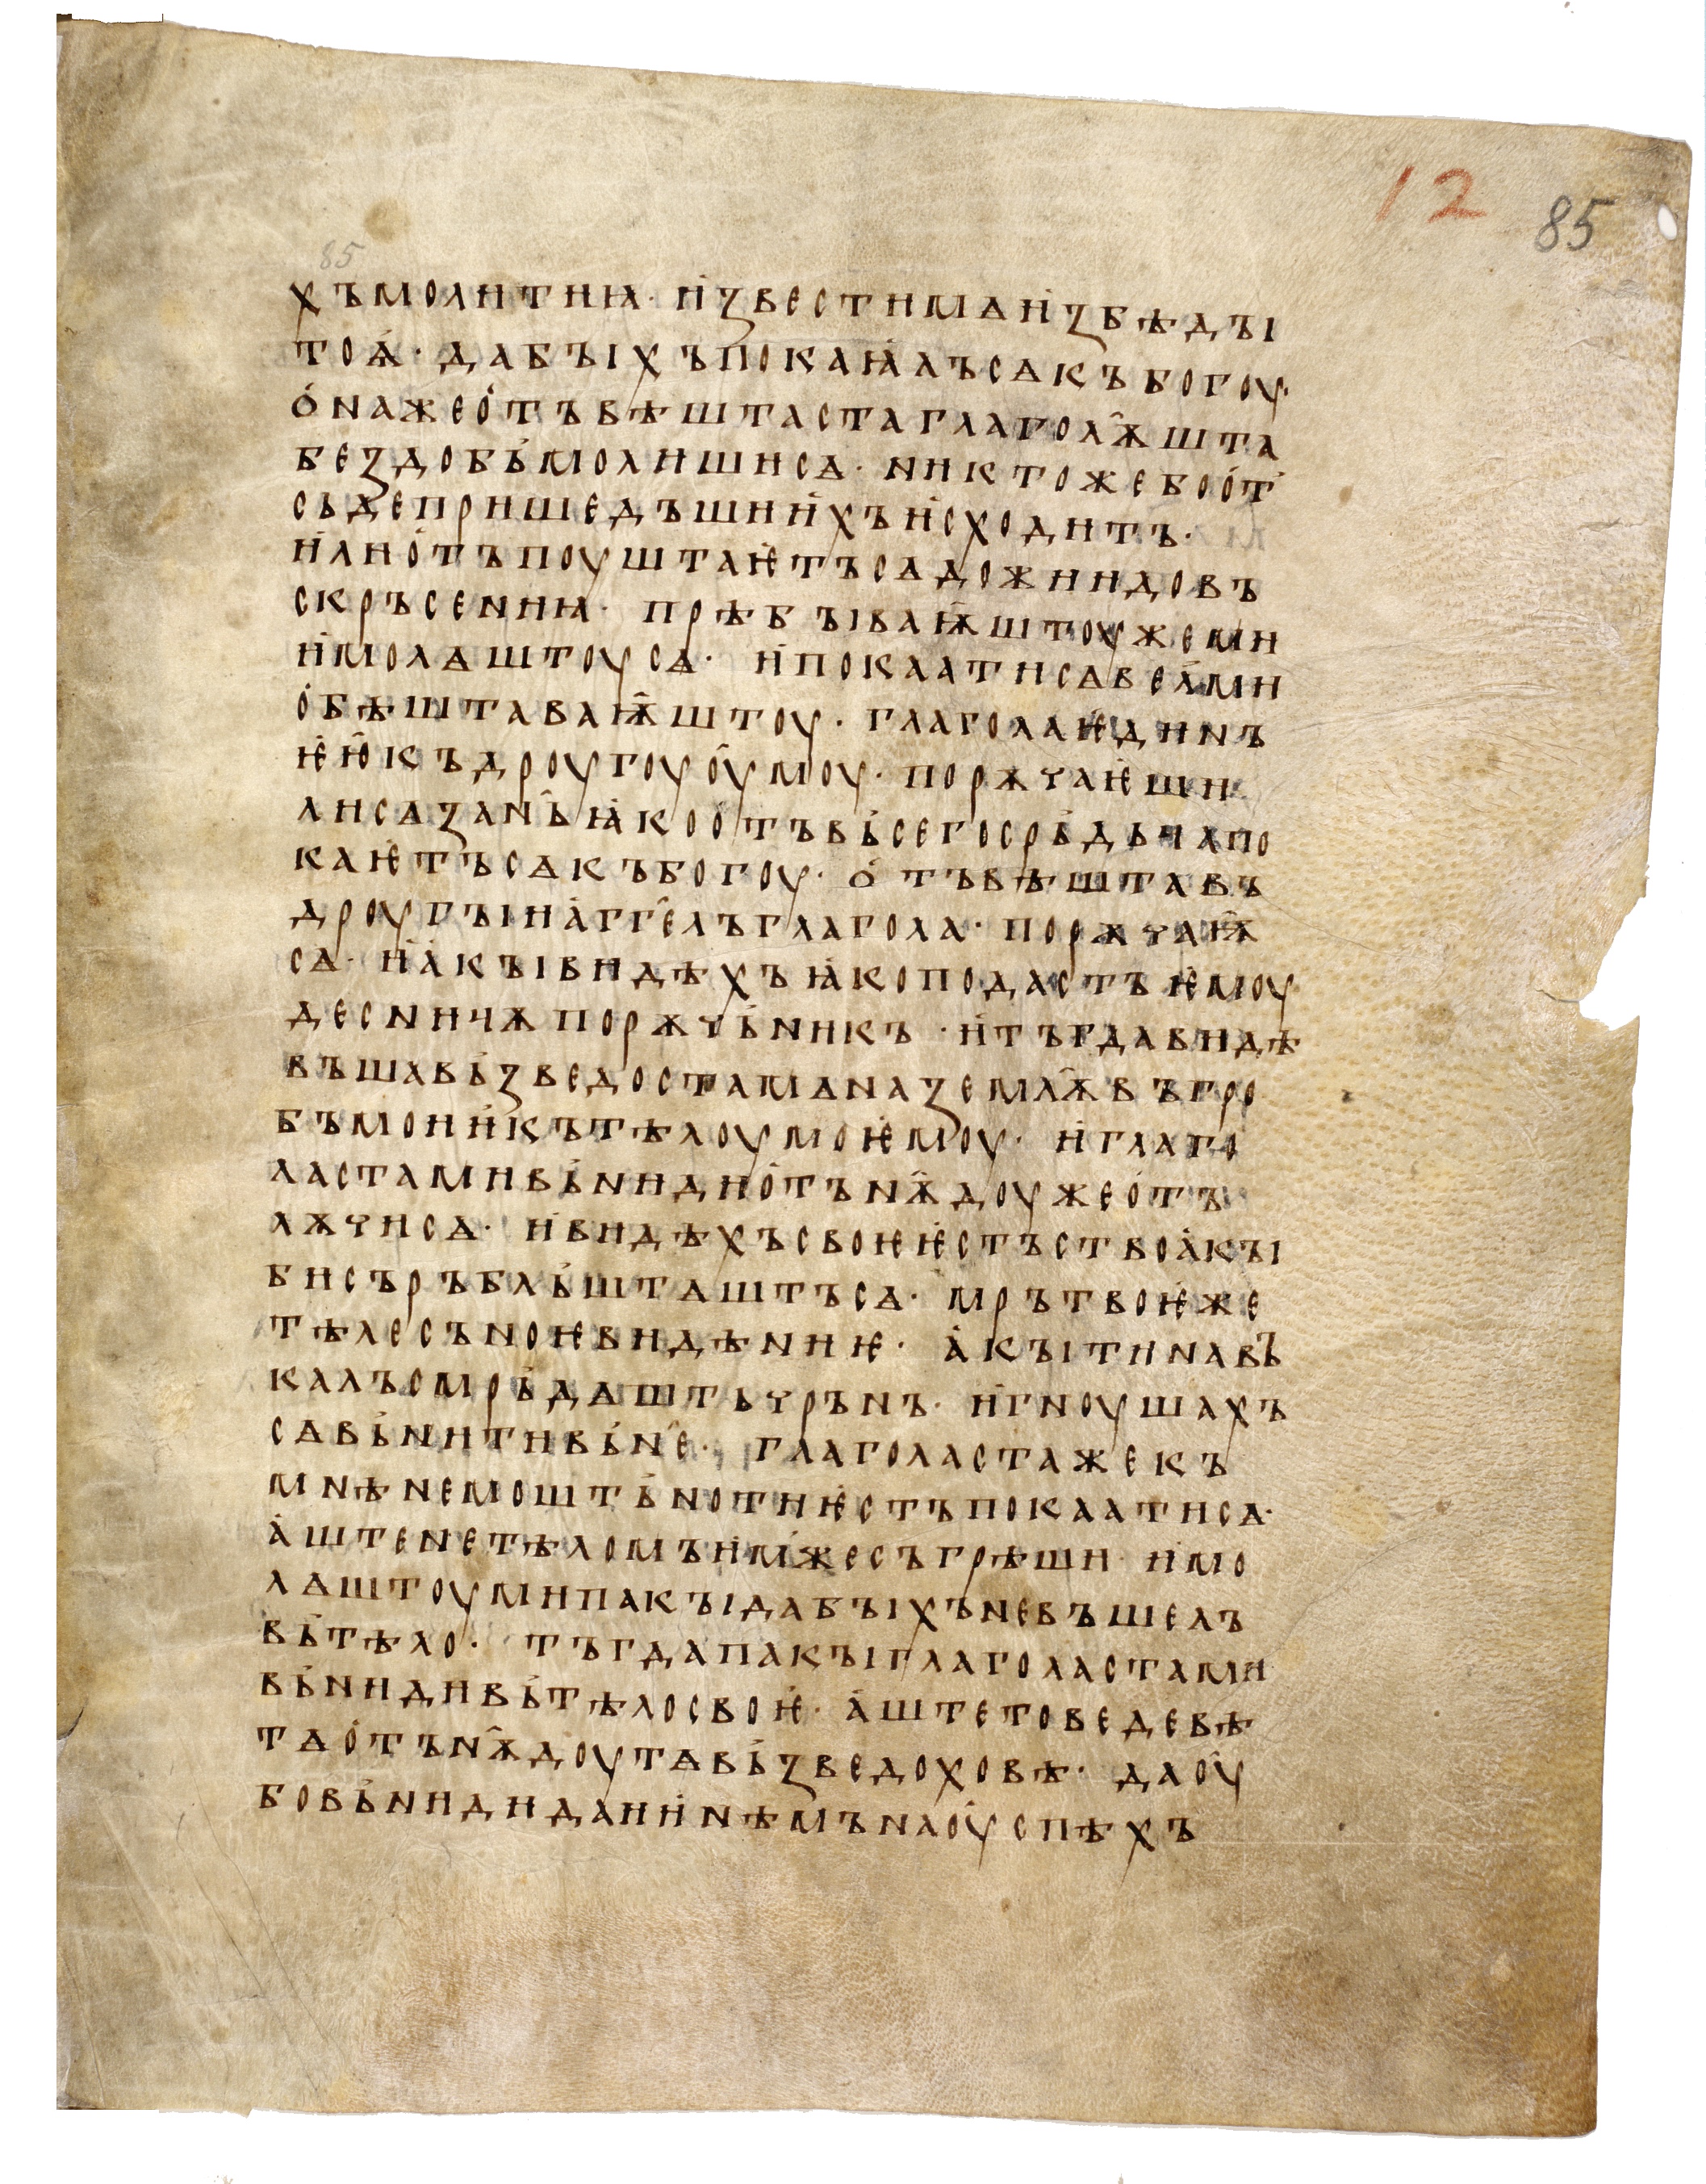 12 85
85
хъмолитиꙗ· и҅звестимѧи҅збѣдꙑ
тоѧ҅· дабꙑхъпокаꙗ҅лъсѧкъбогоу·
о҅нажео҅тъвѣштастаглагол҄ѫшта
бездобь҅молишисѧ· никтожебоо҅т҅
сьдепришедъшиии҅хъи҅сходитъ·
и҅лио҅тъпоуштаѥ҅тъсѧдожиидовъ
скръсениꙗ· прѣбꙑваѭ҄штоужеми
и҅молѧштоусѧ· и҅покаатисѧвел҄ьми
о҅бѣштаваѭ҄штоу· глаголаѥ҅динъ
ѥ҅ю҅къдроугоуо҅умоу· порѫчаѥ҅ши
лисѧзан҄ьꙗ҅коо҅тъвь҅сегосрь҅дьцапо
каѥ҅тъсѧкъбогоу· о҅тъвѣштавъ
дроугꙑиа҅г҄г҄елъглагола· порѫчаѭ҄
сѧ· и҅а҅кꙑвидѣхъꙗ҅коподастъѥ҅моу
десницѫпорѫчь҅никъ· и҅тъгдавидѣ
въшавь҅зведостамѧназемл҄ѫвъгро
бъмоии҅кътѣлоумоѥ҅моу· и҅глаго
ластамивь҅нидио҅тън҄ѫдоужео҅тъ
лѫчисѧ· и҅видѣхъсвоѥѥ҅стъствоа҅кꙑ
бисъръбль҅штѧштъсѧ· мрътвоѥ҅же
тѣлесъноѥвидѣниѥ· а҅кꙑтинавъ
калъсмрь҅дѧштьчрънъ· и҅гноушахъ
сѧвь҅нитивь҅н҄е· глаголастажекъ
мнѣнемошть҅нотиѥ҅стъпокаатисѧ·
а҅штенетѣломъи҅мь҅жесъгрѣши и҅мо
лѧштоумипакꙑдабꙑхъневъшелъ
вь҅тѣло· тъгдапакꙑглаголастами
вь҅нидивь҅тѣлосвоѥ҅· а҅штетоведевѣ
тѧо҅тън҄ѫдоутѧвь҅зведоховѣ· дао҅у
бовь҅нидидаии҅нѣмънао҅успѣхъ